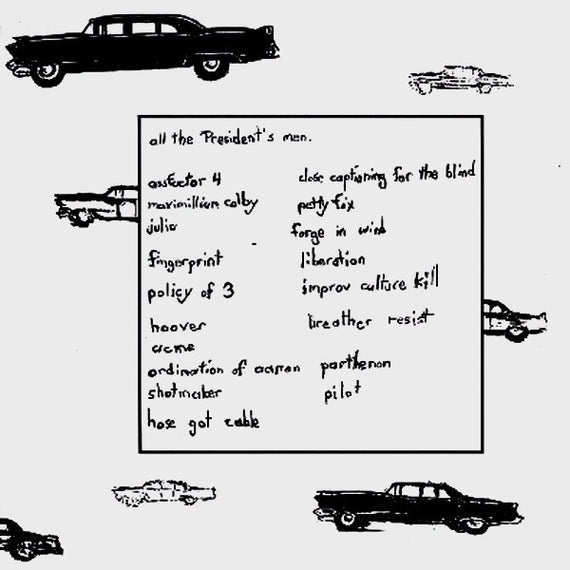 all the President's men.
assfactor 4
maximillian colby
julia
fingerprint
policy of 3
hoover
acme
ordination of aaron
shotmaker
hose got cable
close captioning for the blind
petty fox
forge in wind
liberation
improv culture kill
breather resist
parthenon
pilot